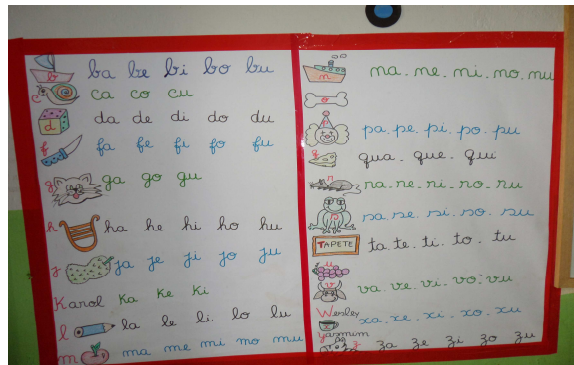 b ba be bi bo bu
c ca co cu
d da de di do du
f fa fe fi fo fu
g ga go gu
h ha he hi ho hu
j ja je ji jo ju
Karol ka ke ki
l la le li. lo lu
m ma me mi mo mu
n na. ne. ni. no. nu
o
p pa. pe. pi. po. pu
q qua. que. qui
r ra. re. ri. ro. ru
s sa. se. si. so. su
TAPETE ta. te. ti. to. tu
u
v va. ve. vi. vo. vu
Wesley
xa. xe. xi. xo. xu
yasmim
z za ze zi zo zu